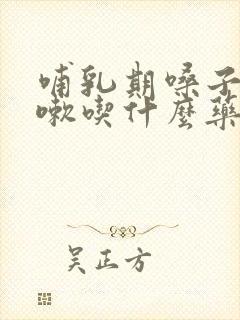 哺乳期嗓子
嗽喫什麼藥
吴正方